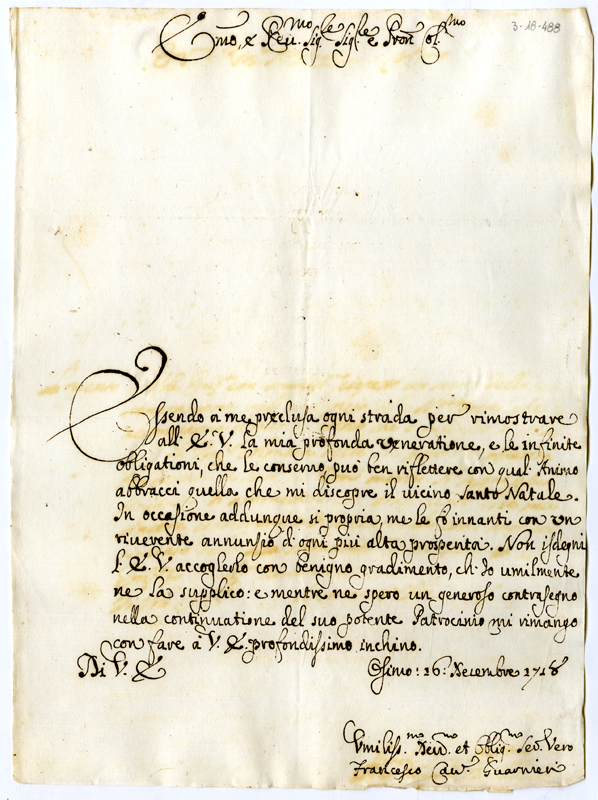 3-18-488
Emo, e Reu.mo Sig.le Sig.le e Pron Ol.mo
Essendo a me preclusa ogni strada per rimostrare
all. E. V. la mia profonda veneratione, e le infinite
obligationi, che le conservo, può ben riflettere con qual Animo
abbracci quella che mi discopre il vicino Santo Natale.
In occasione addunque si propria, me le fò innanti con un
riverente annunsio d'ogni più alta prosperità. Non isdegni
l. E. V. accoglerlo con benigno gradimento, ch'Io umilmente
ne la supplico: e mentre ne spero un generoso contrasegno
nella continuatione del suo potente Patrocinio mi rimango
con fare à V. E. profondissimo inchino.
Di V. E Osimo: 16: Decembre 1718
Vmiliss.mo Deu.mo et Oblig.mo Seu. Vero
Francesco Cau.r Guarnieri